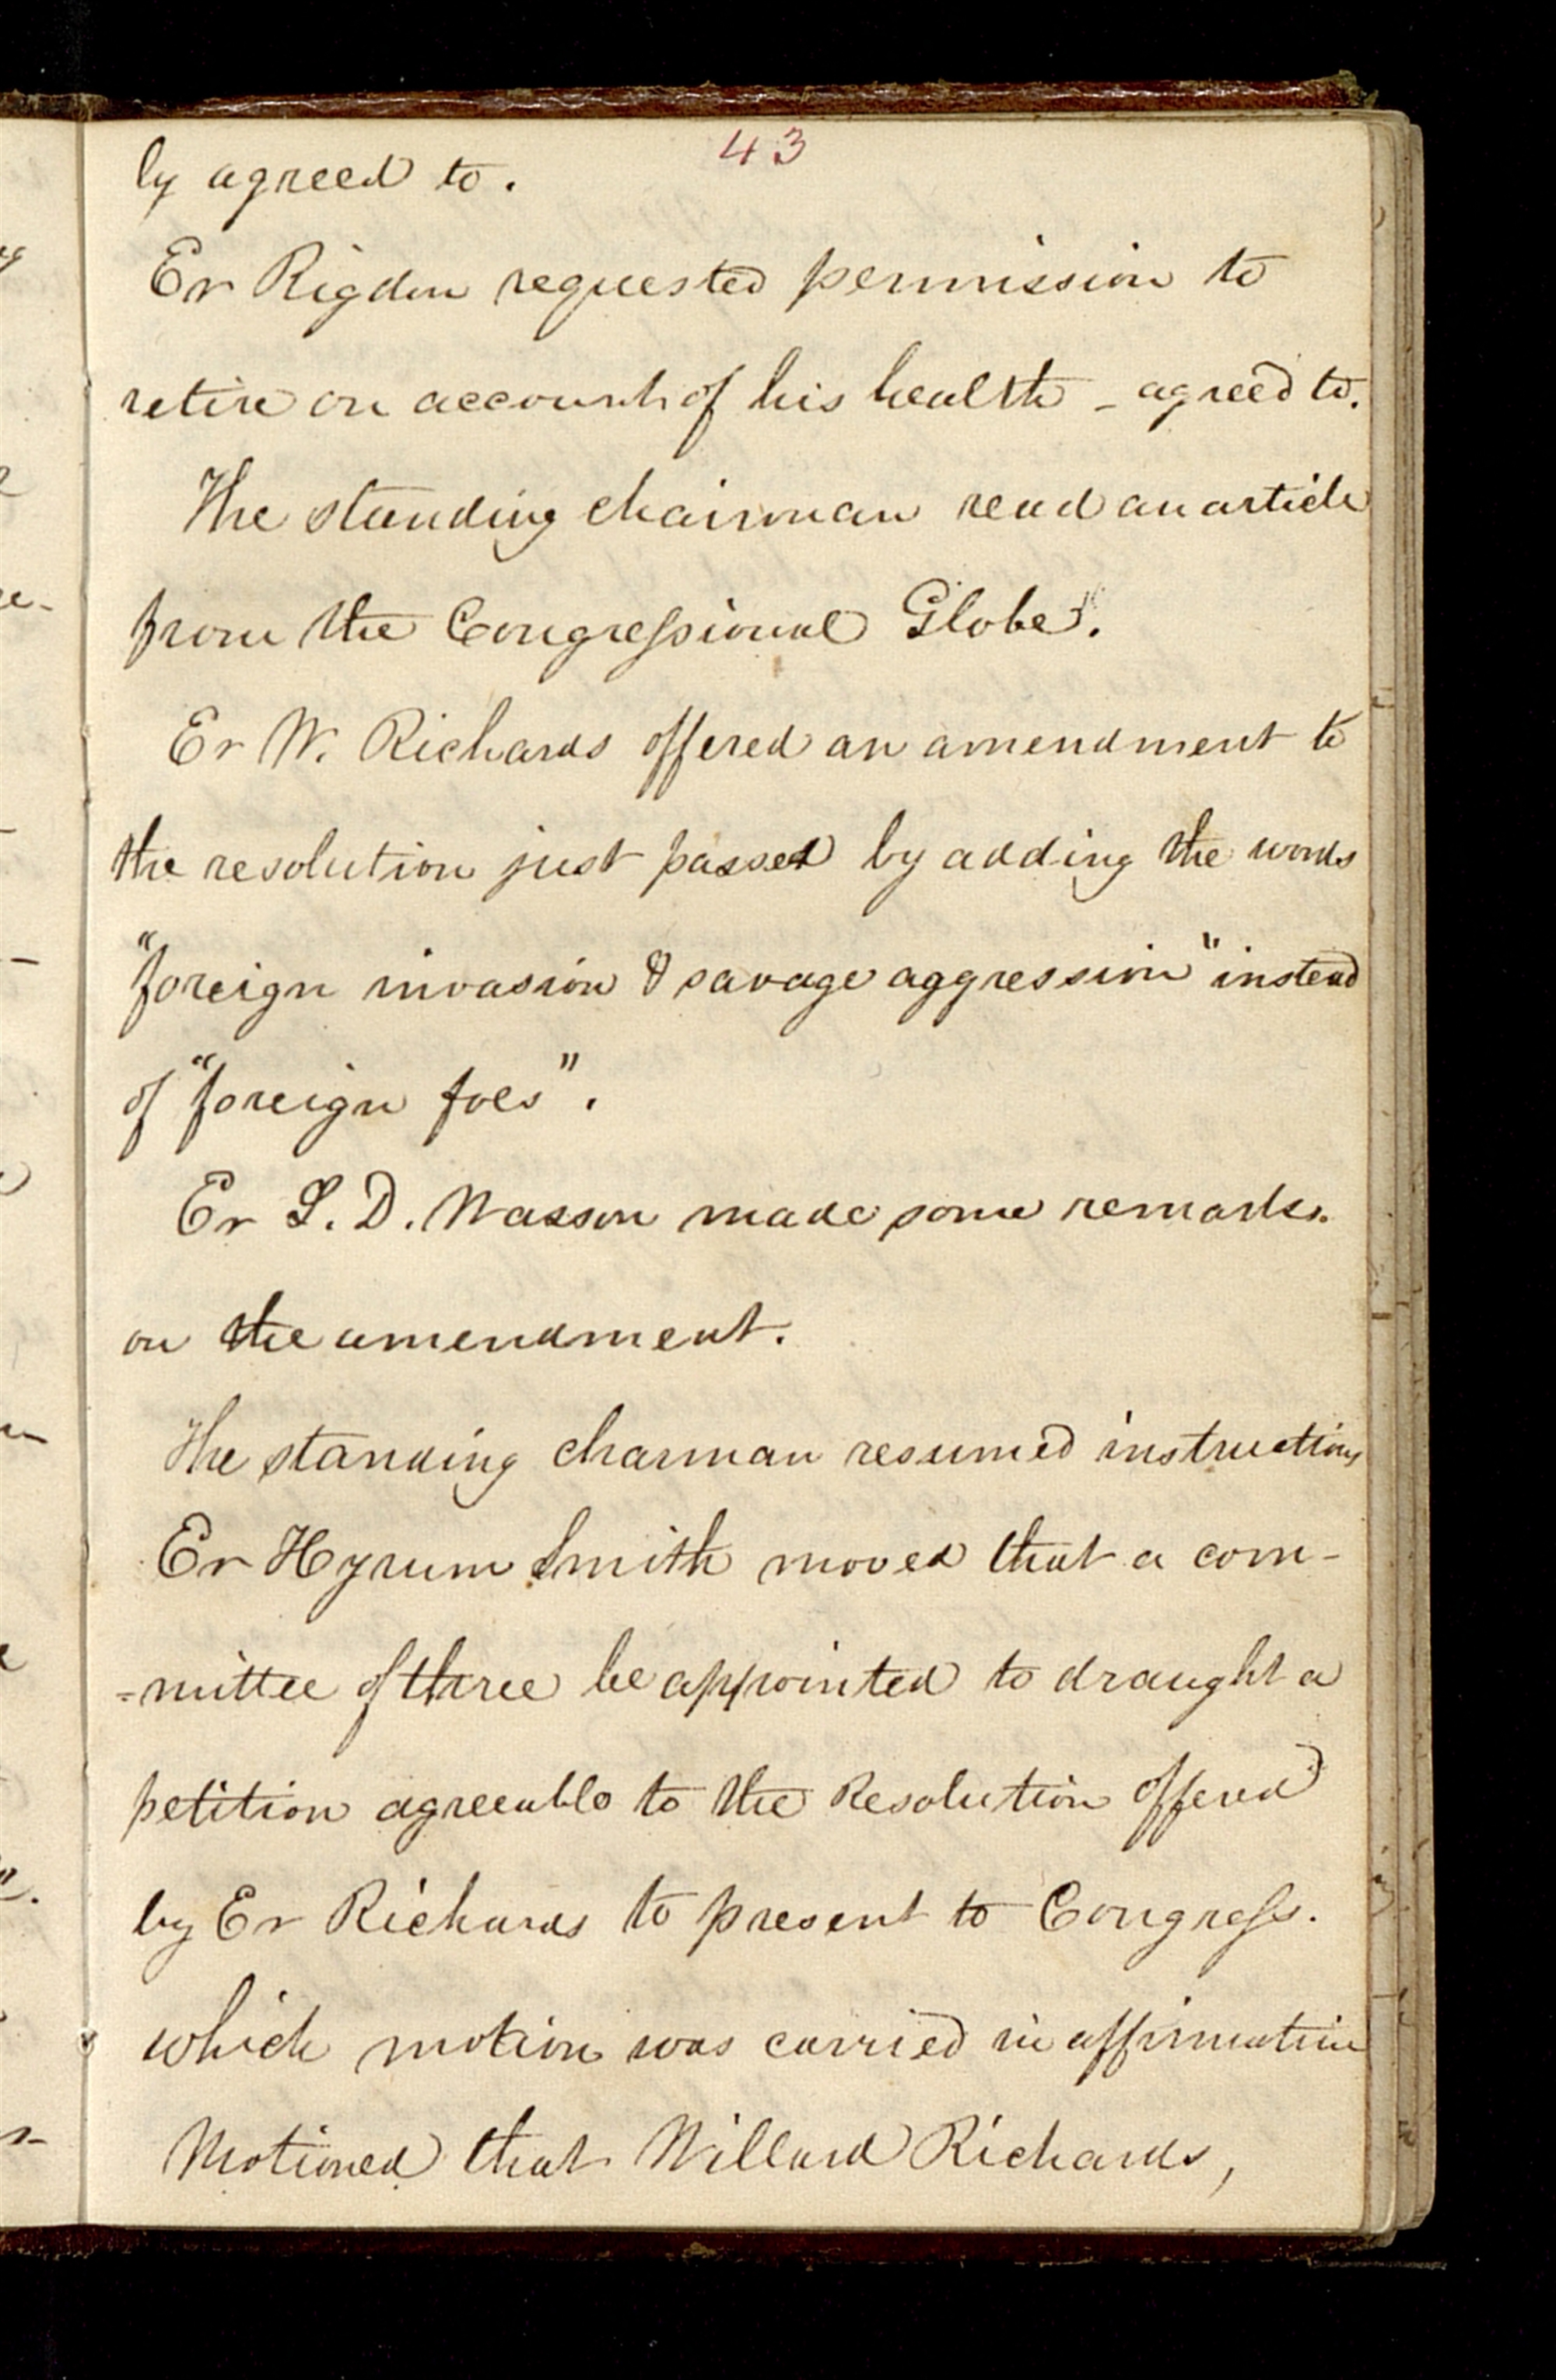 43
ly agreed to.
Er Rigdon requested permission to
retire on account of his health - agreed to.
The standing chairman read an article
from the Congressional Globe".
Er W. Richards offered an amendment to
the resolution just passed by adding the words
"foreign invasion & savage aggression" instead
of "foreign foes".
Er L. D. Wasson made some remarks.
on the amendment.
The standing charman resumed instructions
Er Hyrum Smith moved that a com-
=mittee of three be appointed to draught a
petition agreeable to the Resolution offered
by Er Richards to present to Congress.
which motion was carried in affirmative
Motioned that Willard Richards,